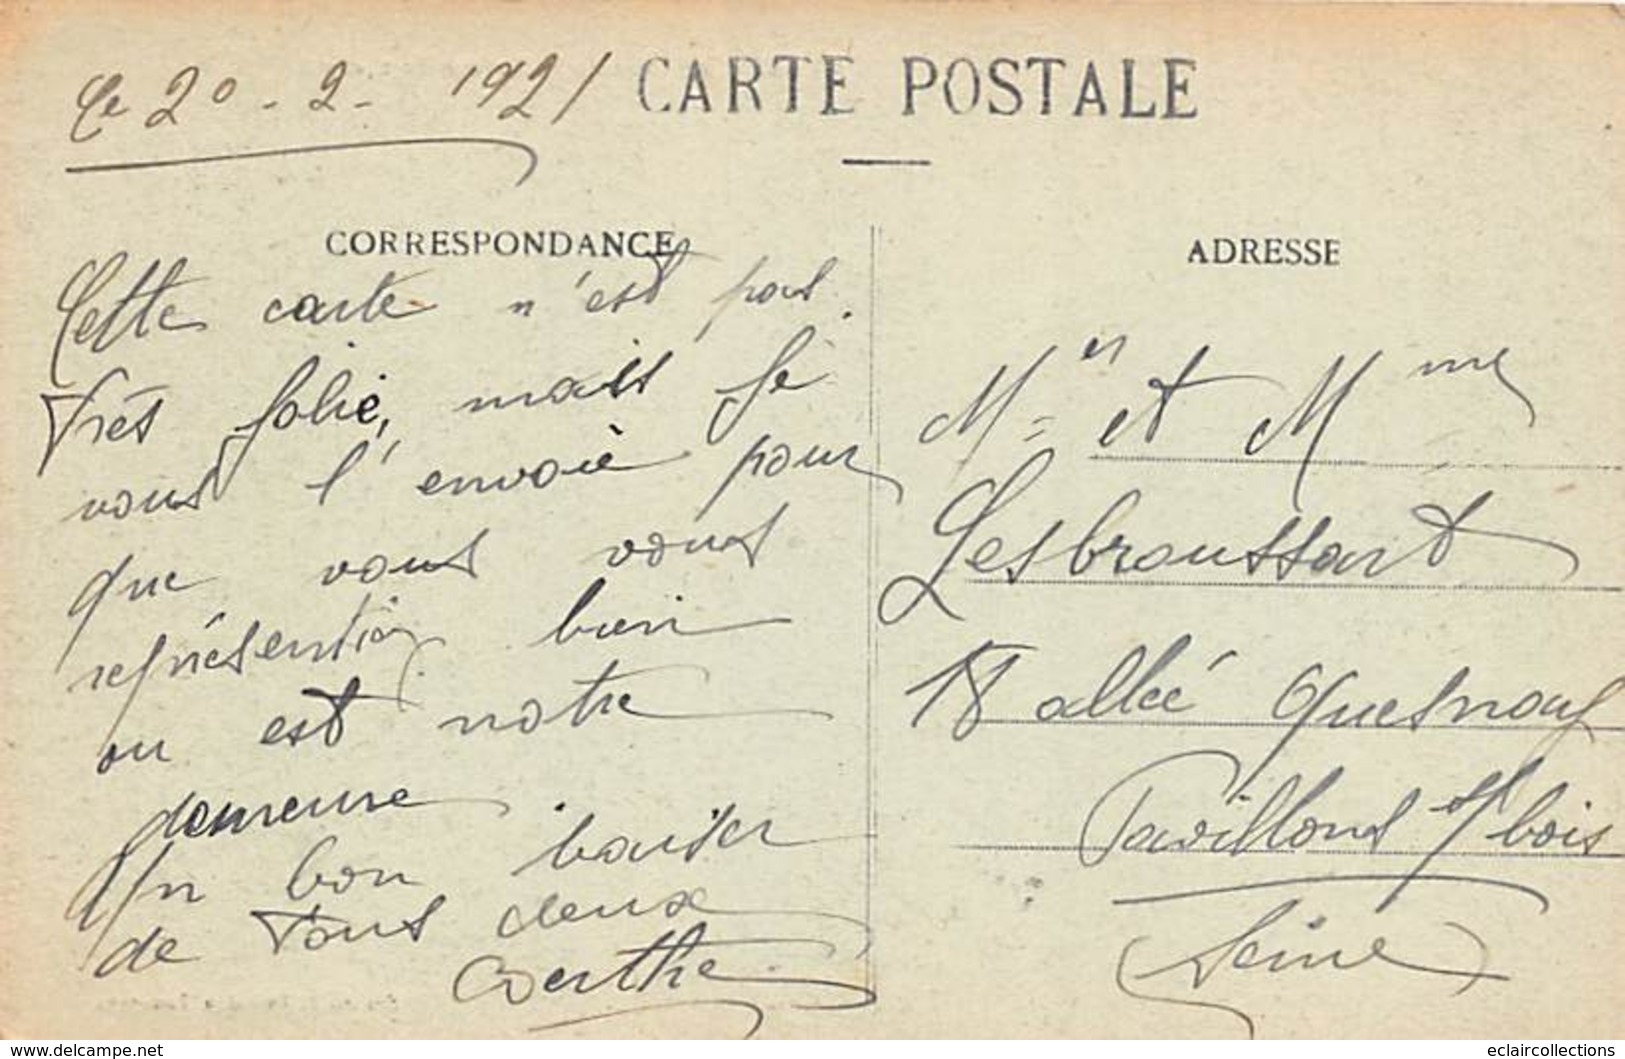 Le 20 - 2 - 1921
CARTE POSTALE
CORRESPONDANCE
Cette carte n'est pas
très jolie, mais je
vous l'envoie pour
que vous vous
représentiez bien
ou est notre
demeure
Un bon baiser
de tous deux
Berthe
ADRESSE
Mr et Mme
Lesbroussart
18 allée Quesnay
Pavillons s/ bois
(Seine)
www.delcampe.net
eclaircollections